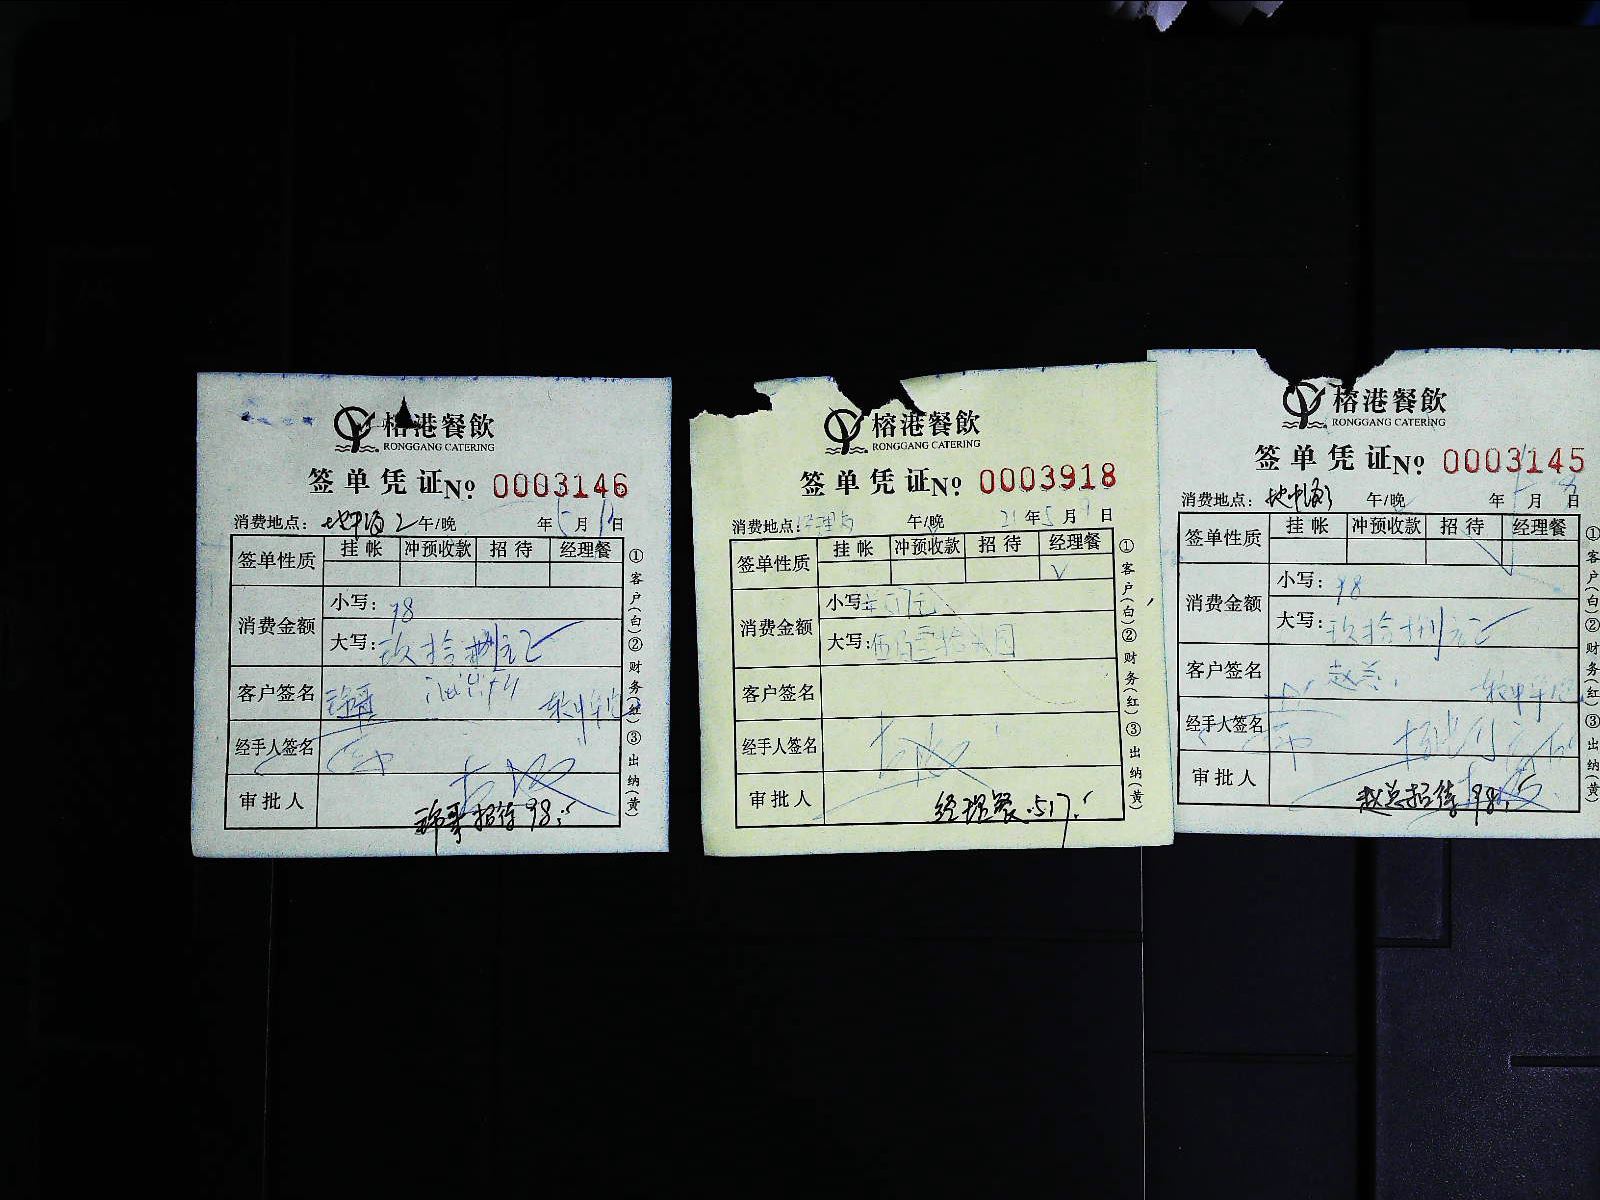 榕港餐飲
RONGGANG CATERING
签单凭证 No 0003146
消费地点: 地中海2 午/晚 年 5 月 日
签单性质 挂帐 冲预收款 招待 经理餐
消费金额 小写: 98
大写: 玖拾捌元正
客户签名
经手人签名
审批人
招待 98.
①客户(白)②财务(红)③出纳(黄)
榕港餐飲
RONGGANG CATERING
签单凭证 No 0003918
消费地点: 午/晚 21 年 5 月 1 日
签单性质 挂帐 冲预收款 招待 经理餐
V
消费金额 小写: 517元
大写:
客户签名
经手人签名
审批人
经理餐 517.
①客户(白)②财务(红)③出纳(黄)
榕港餐飲
RONGGANG CATERING
签单凭证 No 0003145
消费地点: 地中海 午/晚 年 月 日
签单性质 挂帐 冲预收款 招待 经理餐
消费金额 小写: 98
大写: 玖拾捌元正
客户签名 赵总
经手人签名
审批人
赵总招待 98.
①客户(白)②财务(红)③出纳(黄)